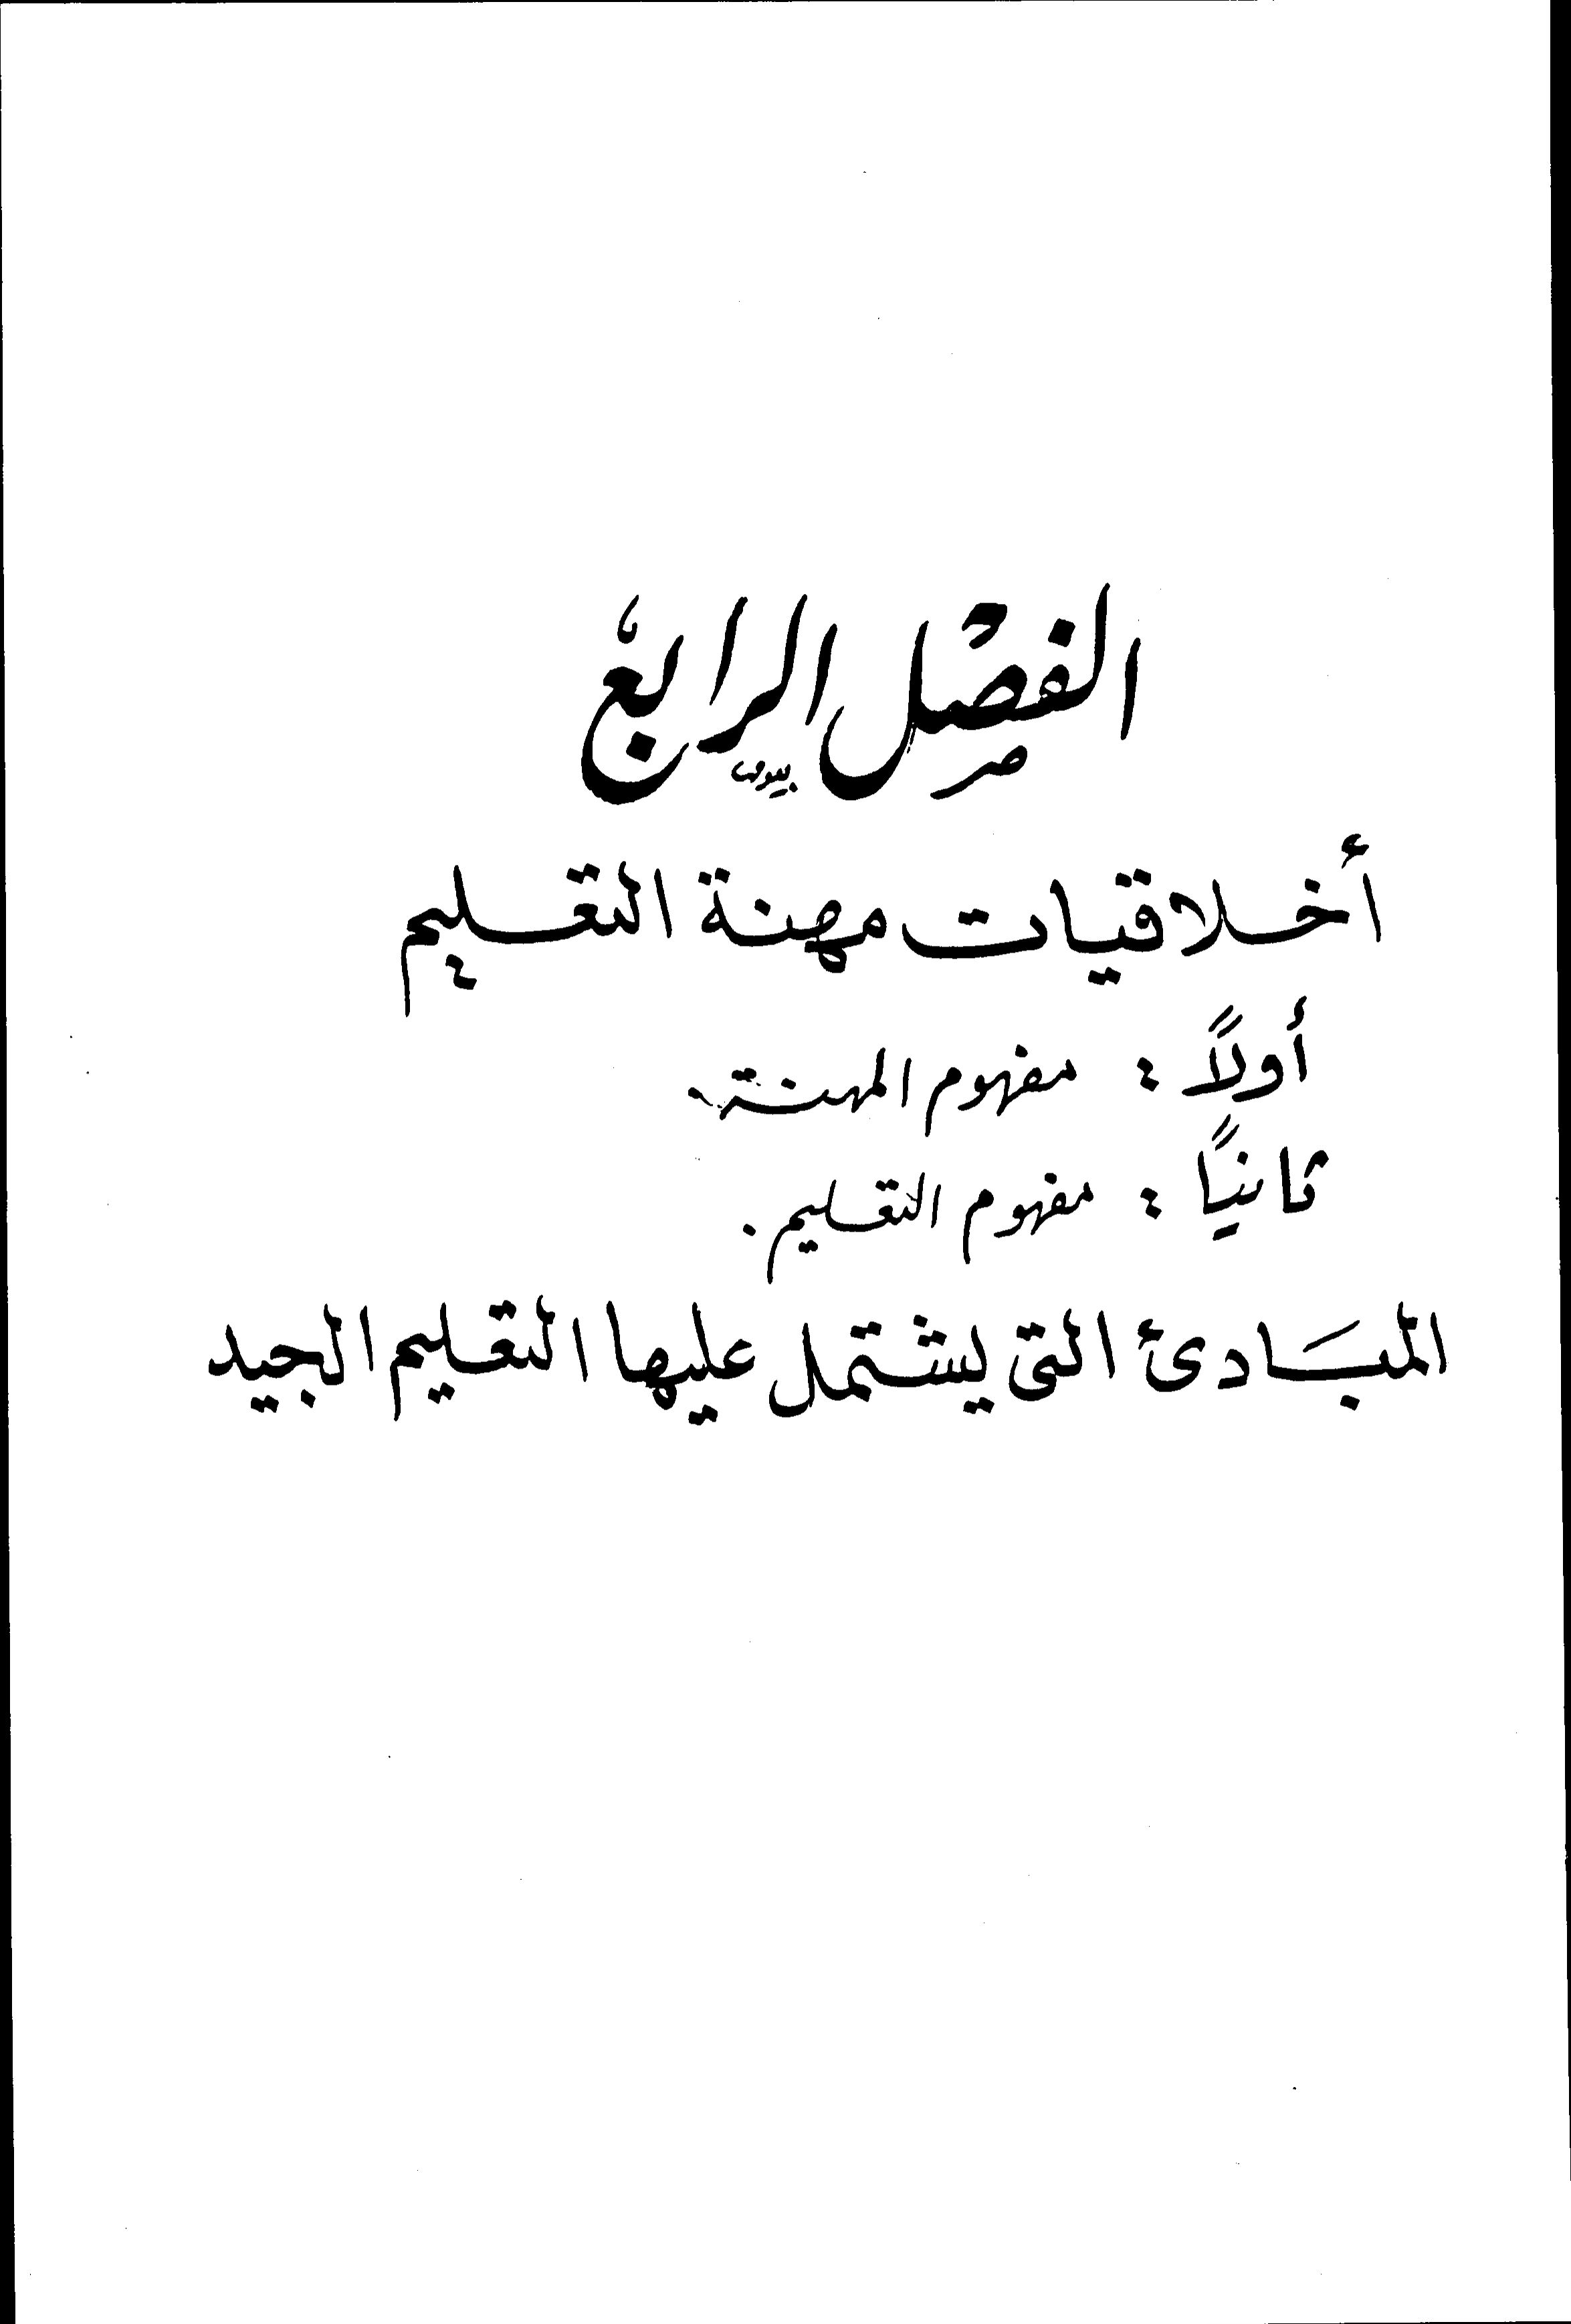 الفصل الرابع
أخلاقيات مهنة التعليم
أولاً : مفهوم المهنة.
ثانيًا : مفهوم التعليم.
المبَادئ التي يشتمل عليها التعليم الجيد